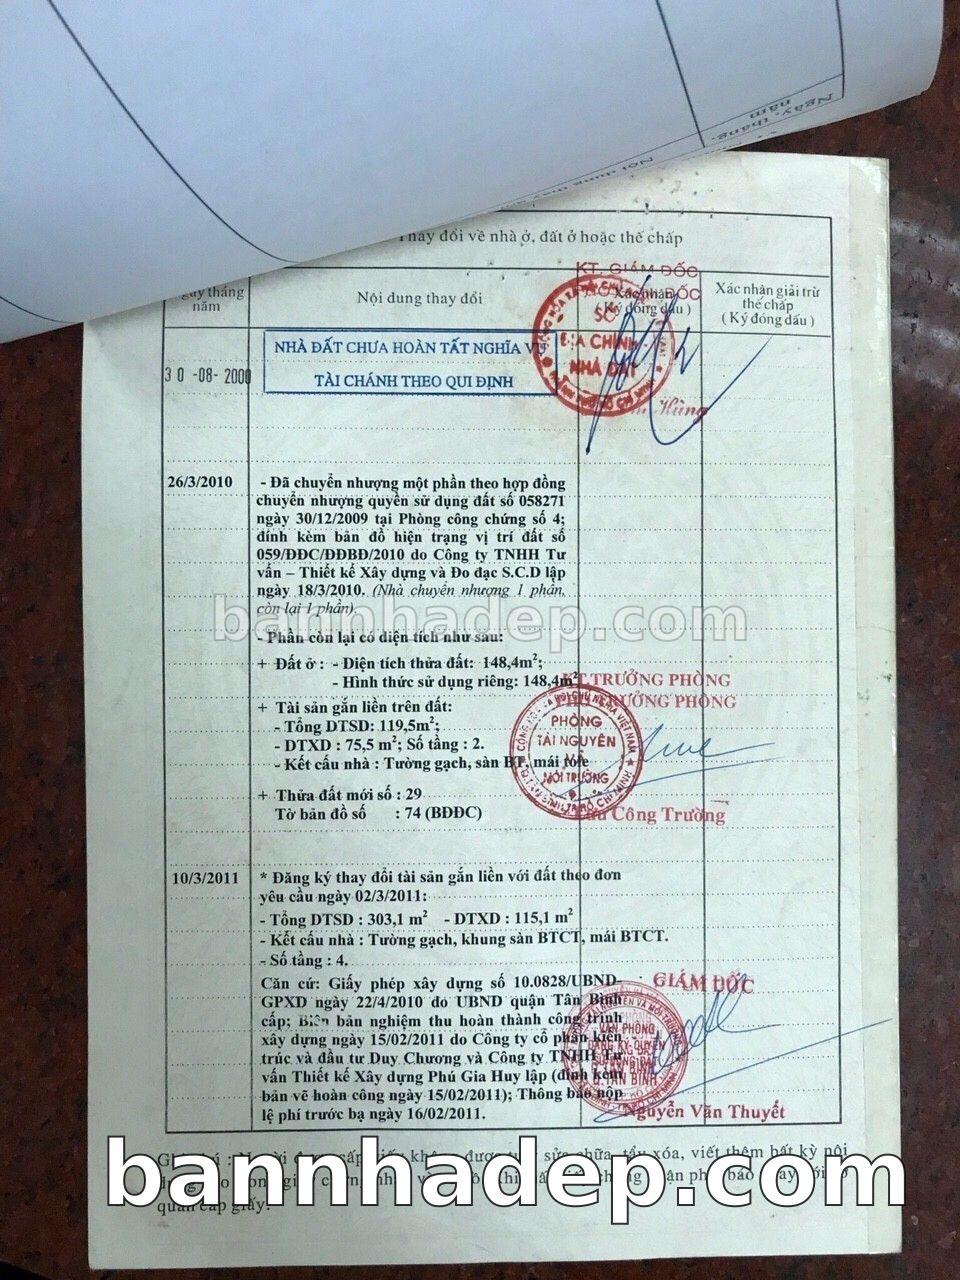 Ngày, tháng, năm
Nội dung thay
Thay đổi về nhà ở, đất ở hoặc thế chấp
tháng
năm
Nội dung thay đổi
Xác nhận
( Ký đóng dấu )
Xác nhận giải trừ
thế chấp
( Ký đóng dấu )
KT. GIÁM ĐỐC
PHÓ GIÁM ĐỐC
30 -08- 2000
NHÀ ĐẤT CHƯA HOÀN TẤT NGHĨA VỤ
TÀI CHÁNH THEO QUI ĐỊNH
SỞ
ĐỊA CHÍNH
NHÀ ĐẤT
Hùng
26/3/2010
- Đã chuyển nhượng một phần theo hợp đồng
chuyển nhượng quyền sử dụng đất số 058271
ngày 30/12/2009 tại Phòng công chứng số 4;
đính kèm bản đồ hiện trạng vị trí đất số
059/ĐĐC/ĐĐBĐ/2010 do Công ty TNHH Tư
vấn – Thiết kế Xây dựng và Đo đạc S.C.D lập
ngày 18/3/2010. (Nhà chuyển nhượng 1 phần,
còn lại 1 phần).
bannhadep.com
- Phần còn lại có diện tích như sau:
+ Đất ở : - Diện tích thửa đất: 148,4m²;
- Hình thức sử dụng riêng: 148,4m²
+ Tài sản gắn liền trên đất:
- Tổng DTSD: 119,5m²;
- DTXD : 75,5 m²; Số tầng : 2.
- Kết cấu nhà : Tường gạch, sàn BT, mái tole
+ Thửa đất mới số : 29
Tờ bản đồ số : 74 (BĐĐC)
KT.TRƯỞNG PHÒNG
PHÓ TRƯỞNG PHÒNG
PHÒNG
TÀI NGUYÊN
VÀ
MÔI TRƯỜNG
Công Trường
10/3/2011
* Đăng ký thay đổi tài sản gắn liền với đất theo đơn
yêu cầu ngày 02/3/2011:
- Tổng DTSD : 303,1 m² - DTXD : 115,1 m²
- Kết cấu nhà : Tường gạch, khung sàn BTCT, mái BTCT.
- Số tầng : 4.
Căn cứ: Giấy phép xây dựng số 10.0828/UBND-
GPXD ngày 22/4/2010 do UBND quận Tân Bình
cấp; Biên bản nghiệm thu hoàn thành công trình
xây dựng ngày 15/02/2011 do Công ty cổ phần kiến
trúc và đầu tư Duy Chương và Công ty TNHH Tư
vấn Thiết kế Xây dựng Phú Gia Huy lập (đính kèm
bản vẽ hoàn công ngày 15/02/2011); Thông báo nộp
lệ phí trước bạ ngày 16/02/2011.
GIÁM ĐỐC
VĂN PHÒNG
ĐĂNG KÝ QUYỀN
SỬ DỤNG ĐẤT
Q. TÂN BÌNH
Nguyễn Văn Thuyết
bannhadep.com
sửa chữa, tẩy xóa, viết thêm bất kỳ nội
cấp giấy.